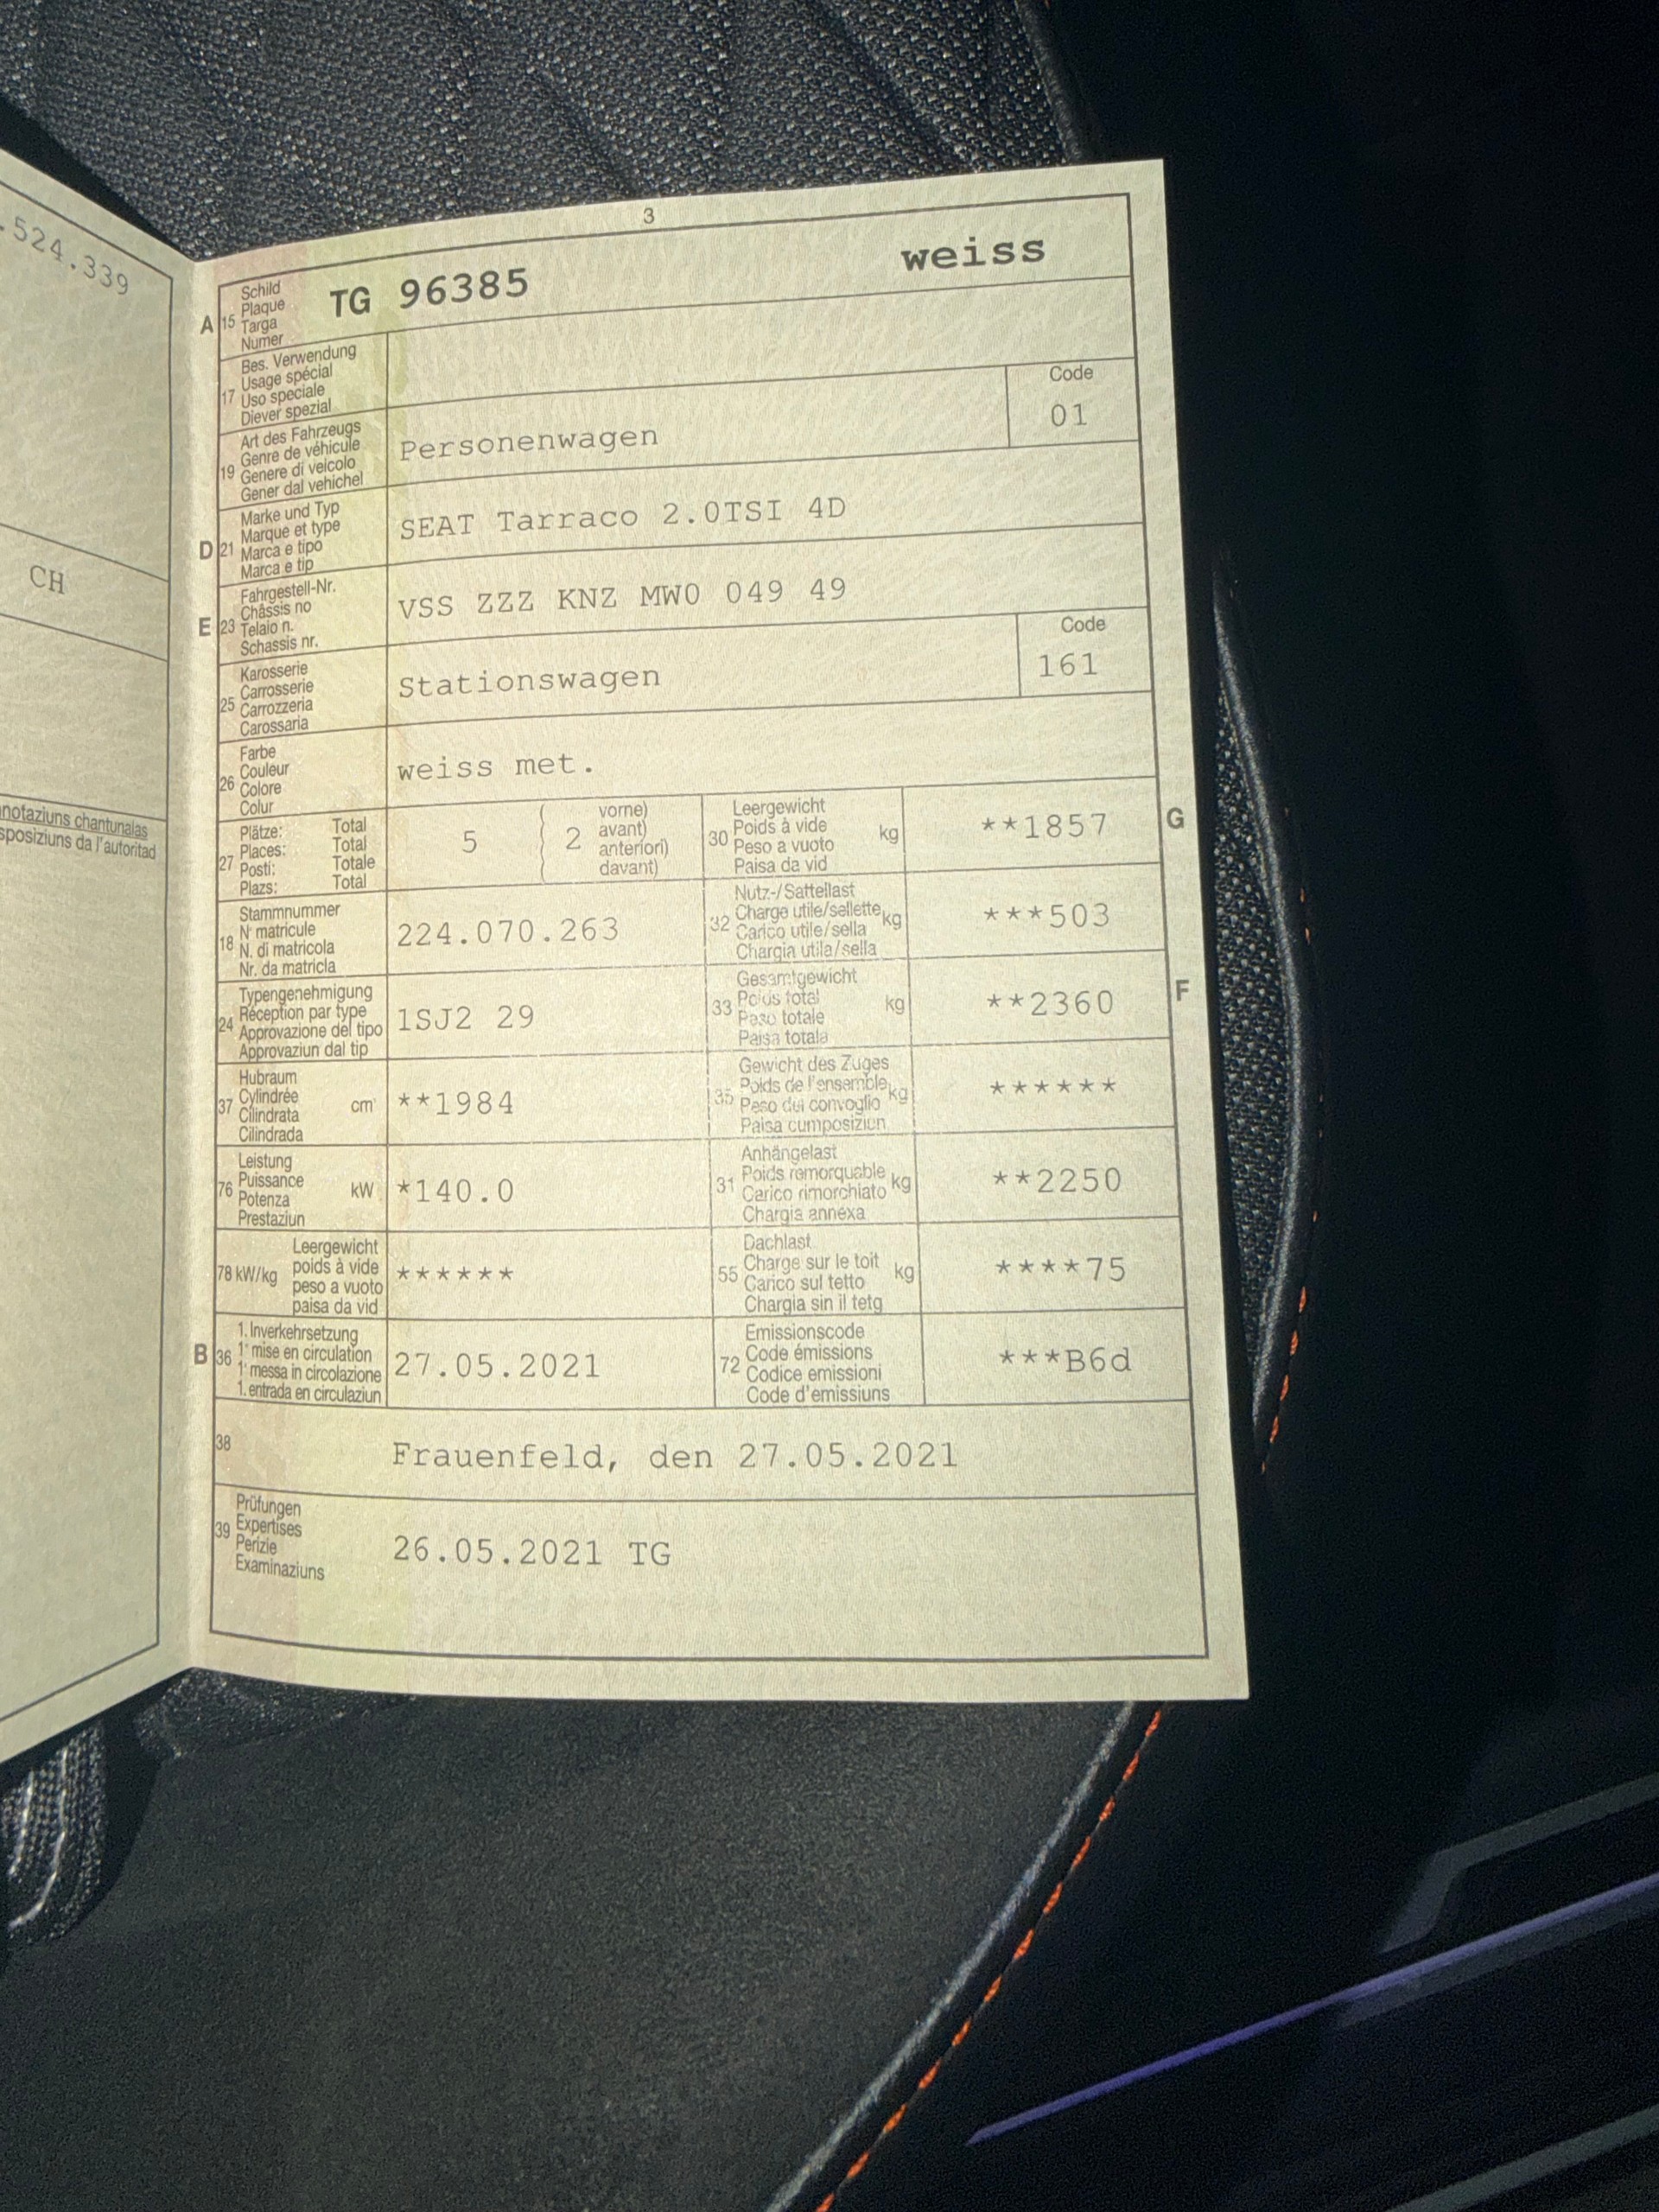 .524.339
CH
notaziuns chantunalas
sposiziuns da l'autoritad
3
A 15 Schild
Plaque
Targa
Numer
TG 96385 weiss
17 Bes. Verwendung
Usage spécial
Uso speciale
Diever spezial
19 Art des Fahrzeugs
Genre de véhicule
Genere di veicolo
Gener dal vehichel
Personenwagen
Code
01
D 21 Marke und Typ
Marque et type
Marca e tipo
Marca e tip
SEAT Tarraco 2.0TSI 4D
E 23 Fahrgestell-Nr.
Châssis no
Telaio n.
Schassis nr.
VSS ZZZ KNZ MW0 049 49
25 Karosserie
Carrosserie
Carrozzeria
Carossaria
Stationswagen
Code
161
26 Farbe
Couleur
Colore
Colur
weiss met.
27 Plätze: Total
Places: Total
Posti: Totale
Plazs: Total
5 ( 2 vorne)
avant)
anteriori)
davant)
30 Leergewicht
Poids à vide
Peso a vuoto
Paisa da vid
kg **1857 G
18 Stammnummer
N° matricule
N. di matricola
Nr. da matricla
224.070.263
32 Nutz-/Sattellast
Charge utile/sellette
Carico utile/sella
Chargia utila/sella
kg ***503
24 Typengenehmigung
Réception par type
Approvazione del tipo
Approvaziun dal tip
1SJ2 29
33 Gesamtgewicht
Poids total
Peso totale
Paisa totala
kg **2360 F
37 Hubraum
Cylindrée
Cilindrata
Cilindrada
cm³ **1984
35 Gewicht des Zuges
Poids de l'ensemble
Peso del convoglio
Paisa cumposiziun
kg ******
76 Leistung
Puissance
Potenza
Prestaziun
kW *140.0
31 Anhängelast
Poids remorquable
Carico rimorchiato
Chargia annexa
kg **2250
78 kW/kg Leergewicht
poids à vide
peso a vuoto
paisa da vid
******
55 Dachlast
Charge sur le toit
Carico sul tetto
Chargia sin il tetg
kg ****75
B 36 1. Inverkehrsetzung
1re mise en circulation
1a messa in circolazione
1. entrada en circulaziun
27.05.2021
72 Emissionscode
Code émissions
Codice emissioni
Code d'emissiuns
***B6d
38 Frauenfeld, den 27.05.2021
39 Prüfungen
Expertises
Perizie
Examinaziuns
26.05.2021 TG